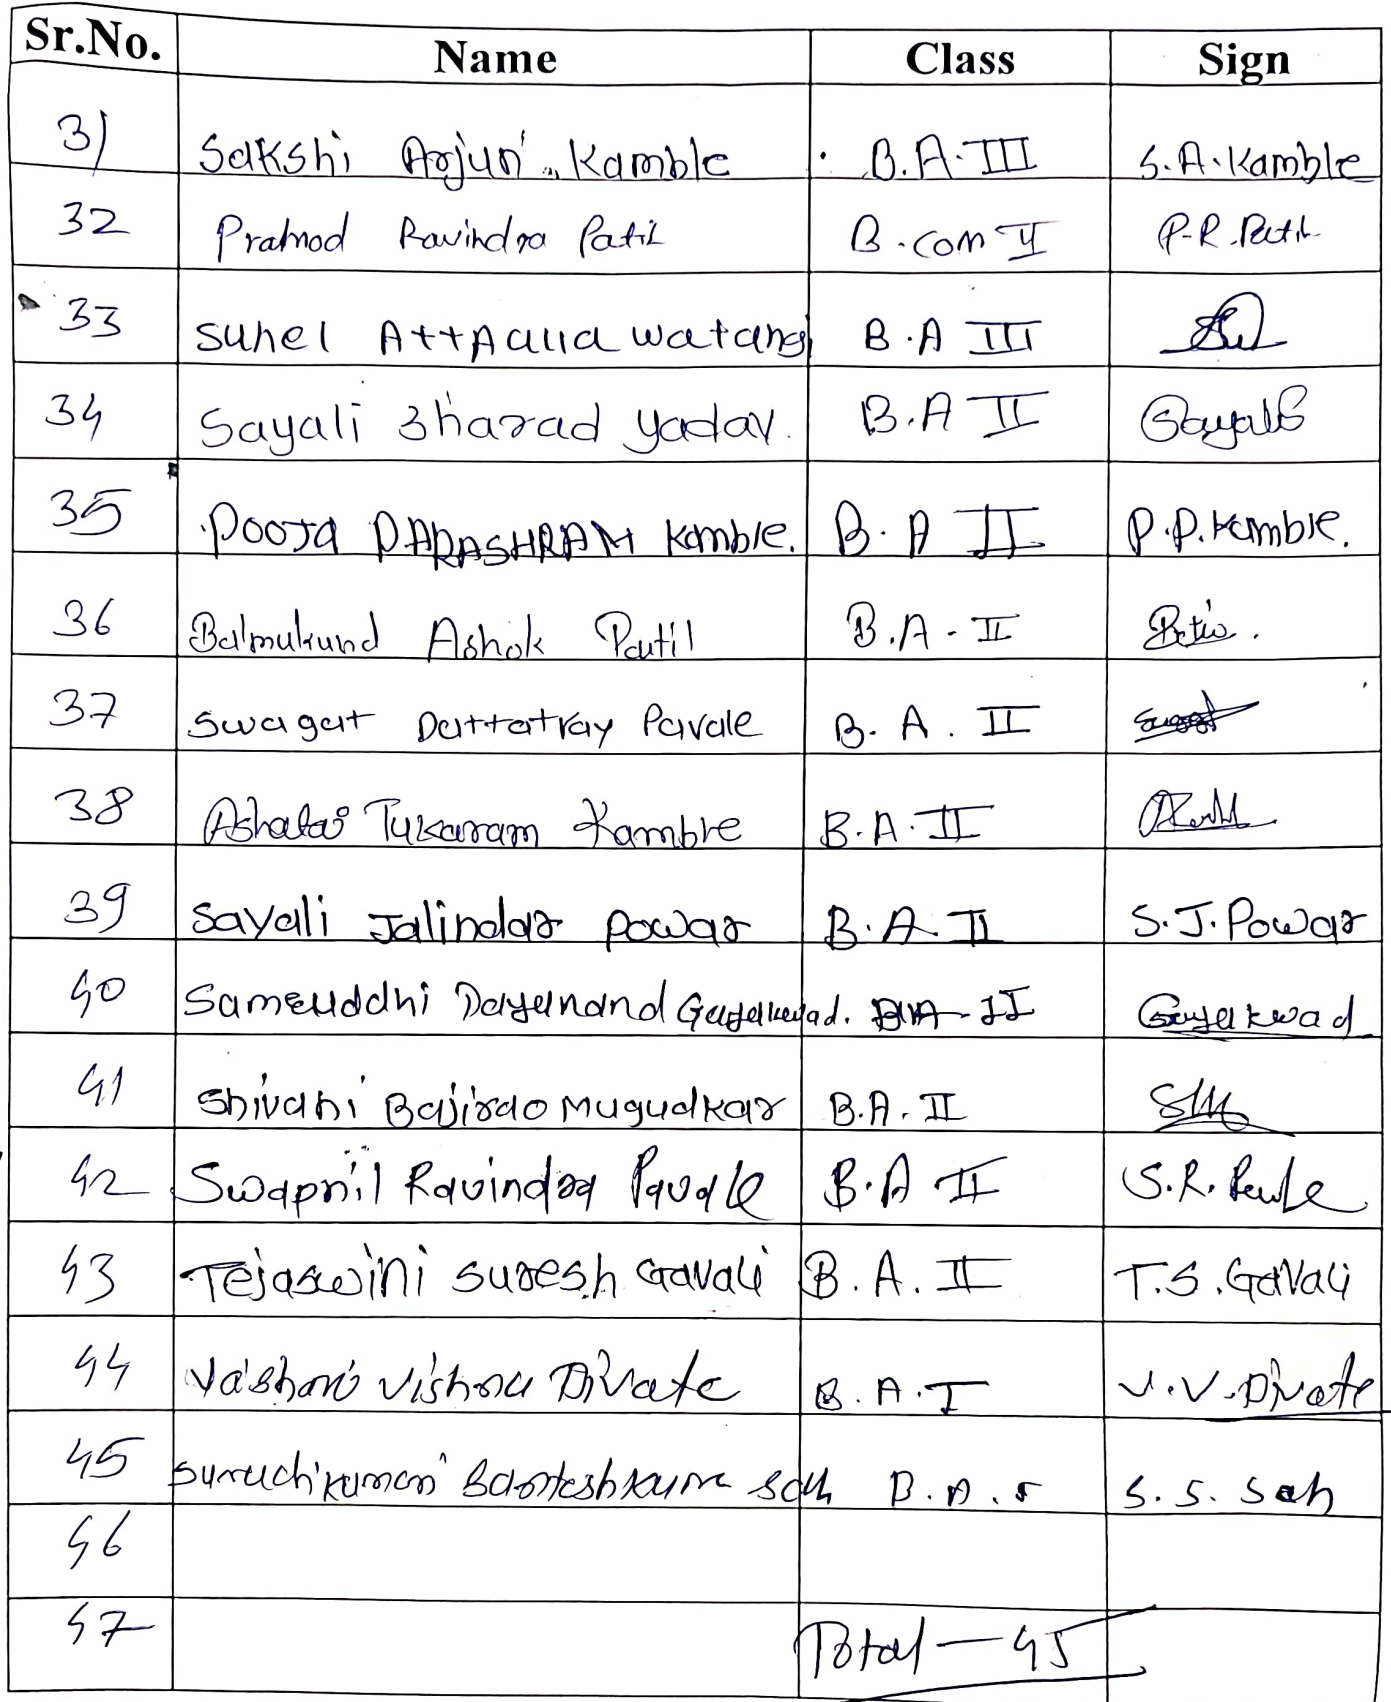 Sr.No. Name Class Sign
31 Sakshi Arjun Kamble B.A. III S.A. Kamble
32 Pramod Ravindra Patil B.com II P.R. Patil
33 Suhel AttAulla watangi B.A III
34 Sayali Sharad yadav. B.A II Sayali
35 Pooja PARASHRAM Kamble. B.A II P.P. Kamble.
36 Balmukund Ashok Patil B.A - II
37 Swagat Dattatray Pavale B. A. II
38 Ashatai Tukaram Kamble B.A. II
39 Sayali Jalindar Powar B.A. II S.J. Powar
40 Dayanand Gayakwad. B.A II Gayakwad
41 Shivani Bajirao Mugudkar B.A. II
42 Swapnil Ravindra Pavale B.A II S.R.
43 Tejaswini Suresh Gavali B.A. II T.S. Gavali
44 Vishnu Divate B.A. I V.V. Divate
45 Sah B.A. S.S. Sah
46
47 Total — 45